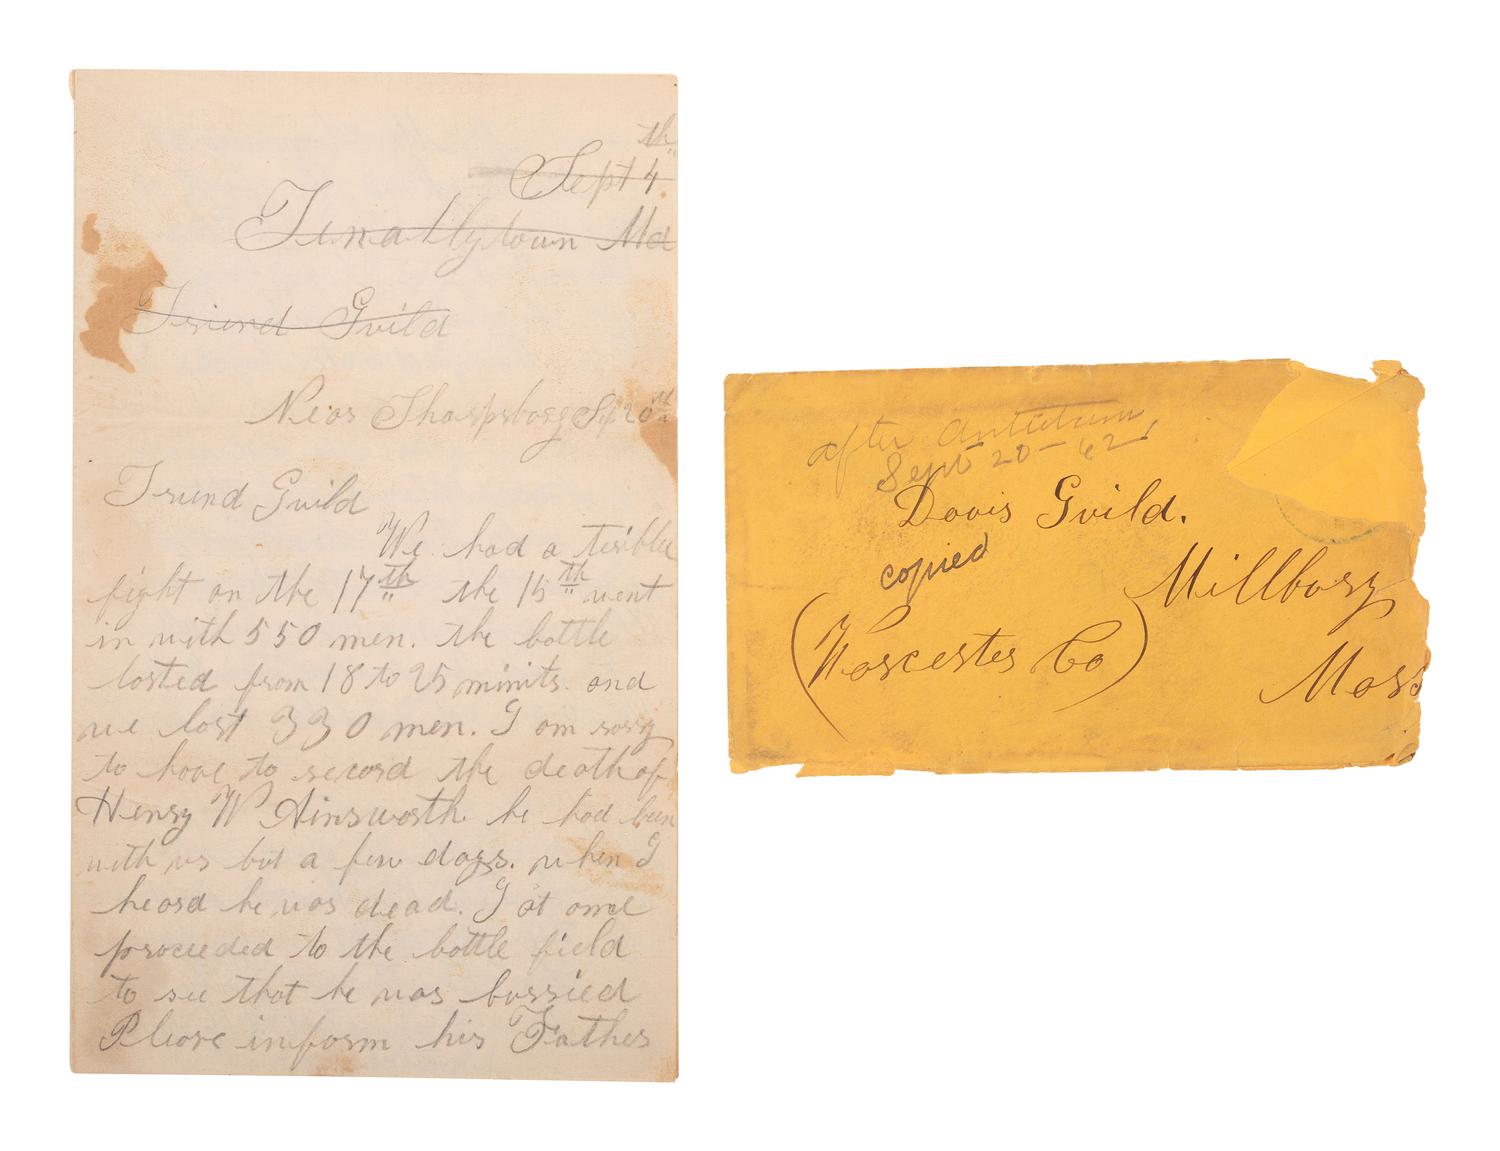 Sept 4th
Tenallytown Md
Friend Guild
Near Sharpsburg Sep 20th
Friend Guild
We had a terible
fight on the 17th the 15th went
in with 550 men. the battle
lasted from 18 to 25 minits. and
we lost 330 men. I am sory
to have to record the death of
Henry W Ainsworth. he had been
with us but a few days. when I
heard he was dead. I at once
proceeded to the battle field
to see that he was burried
Please inform his Father
after Antietam,
Sept 20-62
Davis Guild.
copied
Millbury
(Worcester Co)
Mass